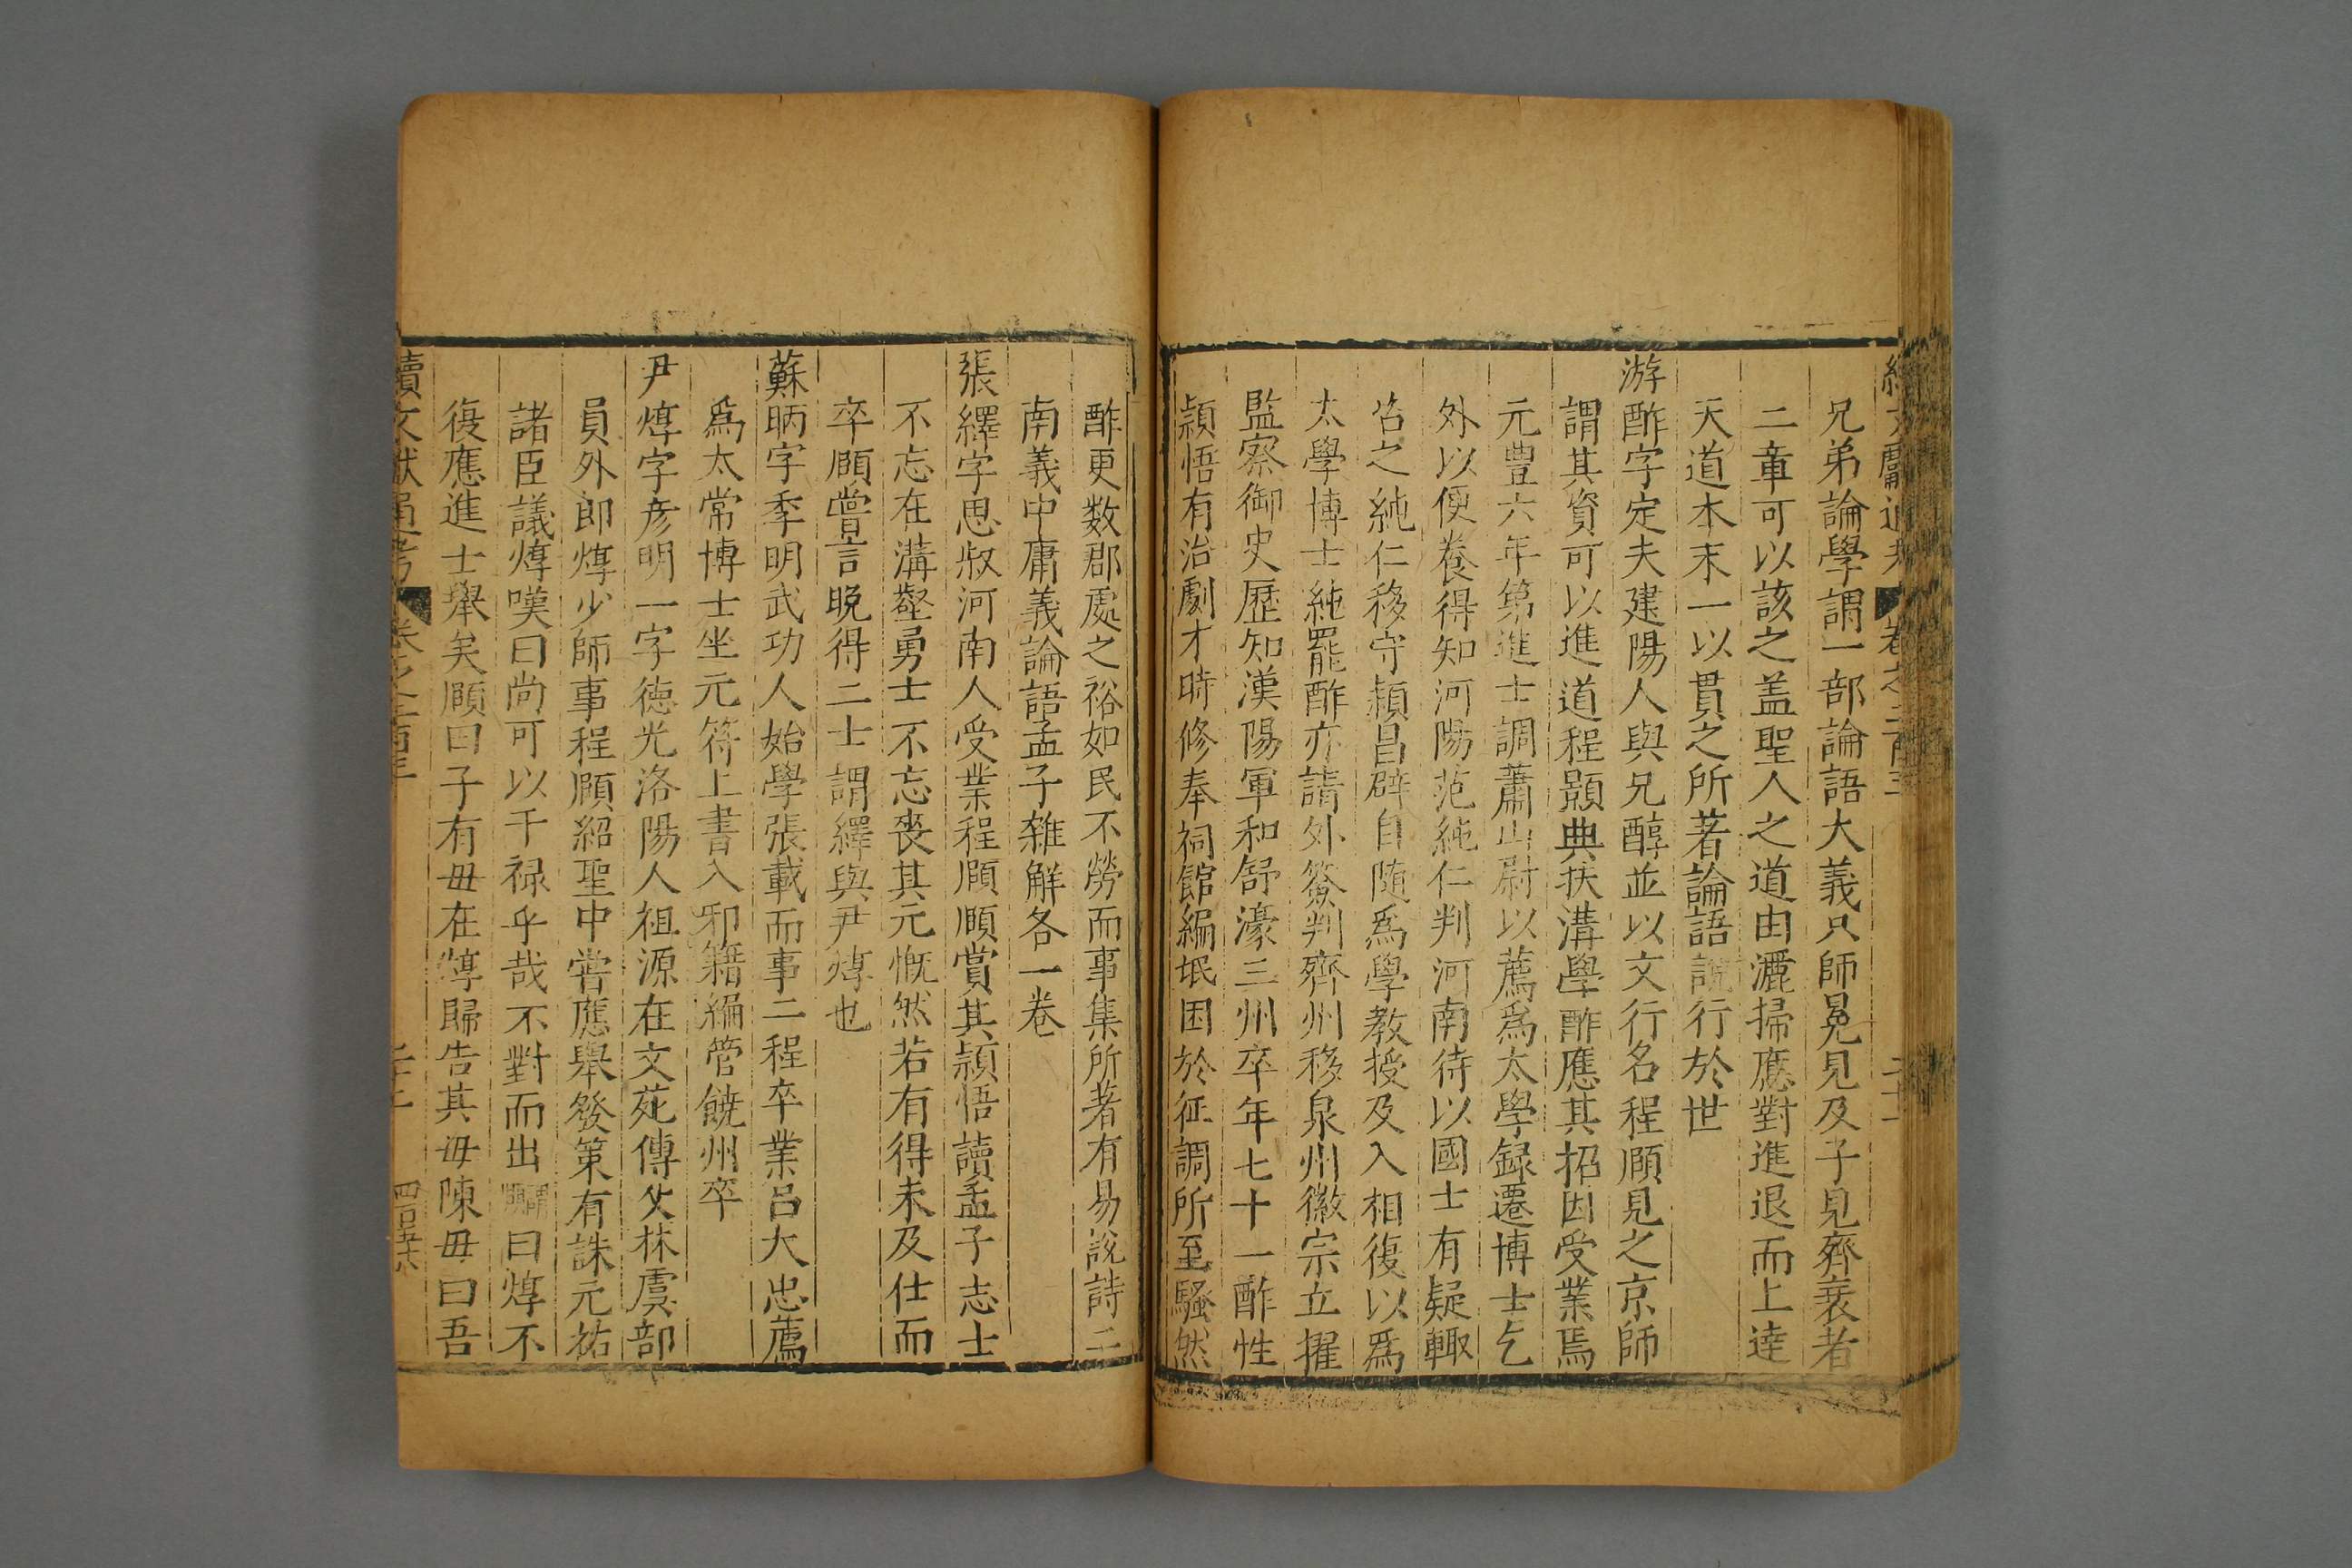 兄弟論學謂一部論語大義只師冕見及子見齊衰者
二章可以該之盖聖人之道由灑掃應對進退而上逹
天道本末一以貫之所著論語說行於世
游酢字定夫建陽人與兄醇並以文行名程頤見之京師
謂其資可以進道程顥典扶溝學酢應其招因受業焉
元豊六年第進士調蕭山尉以薦爲太學録遷博士乞
外以便養得知河陽范純仁判河南待以國士有疑輙
咨之純仁移守頴昌辟自隨爲學教授及入相復以爲
太學博士純罷酢亦請外簽判齊州移泉州徽宗立擢
監察御史歷知漢陽軍和舒濠三州卒年七十一酢性
頴悟有治劇才時修奉祠館編氓困於征調所至騷然
酢更数郡處之裕如民不勞而事集所著有易說詩二
南義中庸義論語孟子雜解各一卷
張繹字思叔河南人受業程頤頤賞其頴悟讀孟子志士
不忘在溝壑勇士不忘喪其元慨然若有得未及仕而
卒頤嘗言晚得二士謂繹與尹焞也
蘇昞字季明武功人始學張載而事二程卒業吕大忠薦
爲太常博士坐元符上書入邪籍編管饒州卒
尹焞字彦明一字徳光洛陽人祖源在文苑傳父林虞部
員外郎焞少師事程頤紹聖中嘗應舉發策有誅元祐
諸臣議焞嘆曰尚可以干禄乎哉不對而出謂頤曰焞不
復應進士舉矣頤曰子有毋在焞歸告其毋陳毋曰吾
續文獻通考 卷之二百三